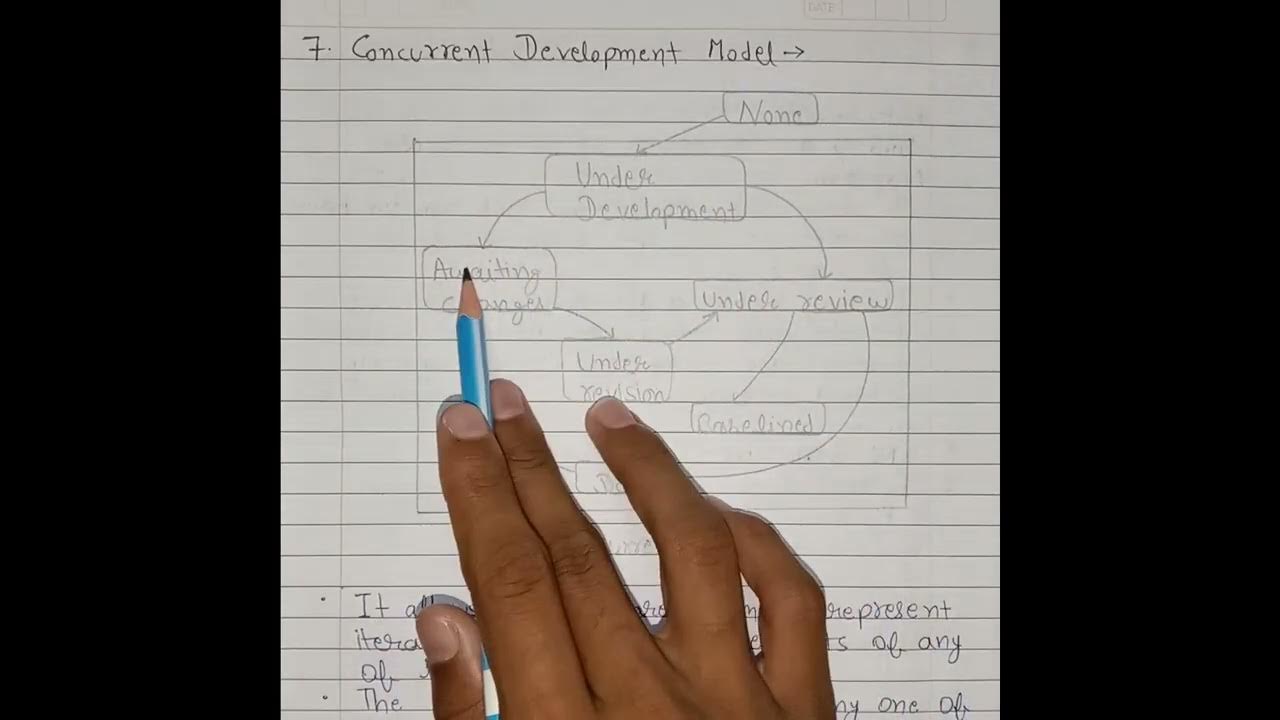 DATE
7. Concurrent Development Model →
None
Under
Development
Awaiting
changes
Under review
Under
revision
Baselined
It represent
of any
of
The any one of